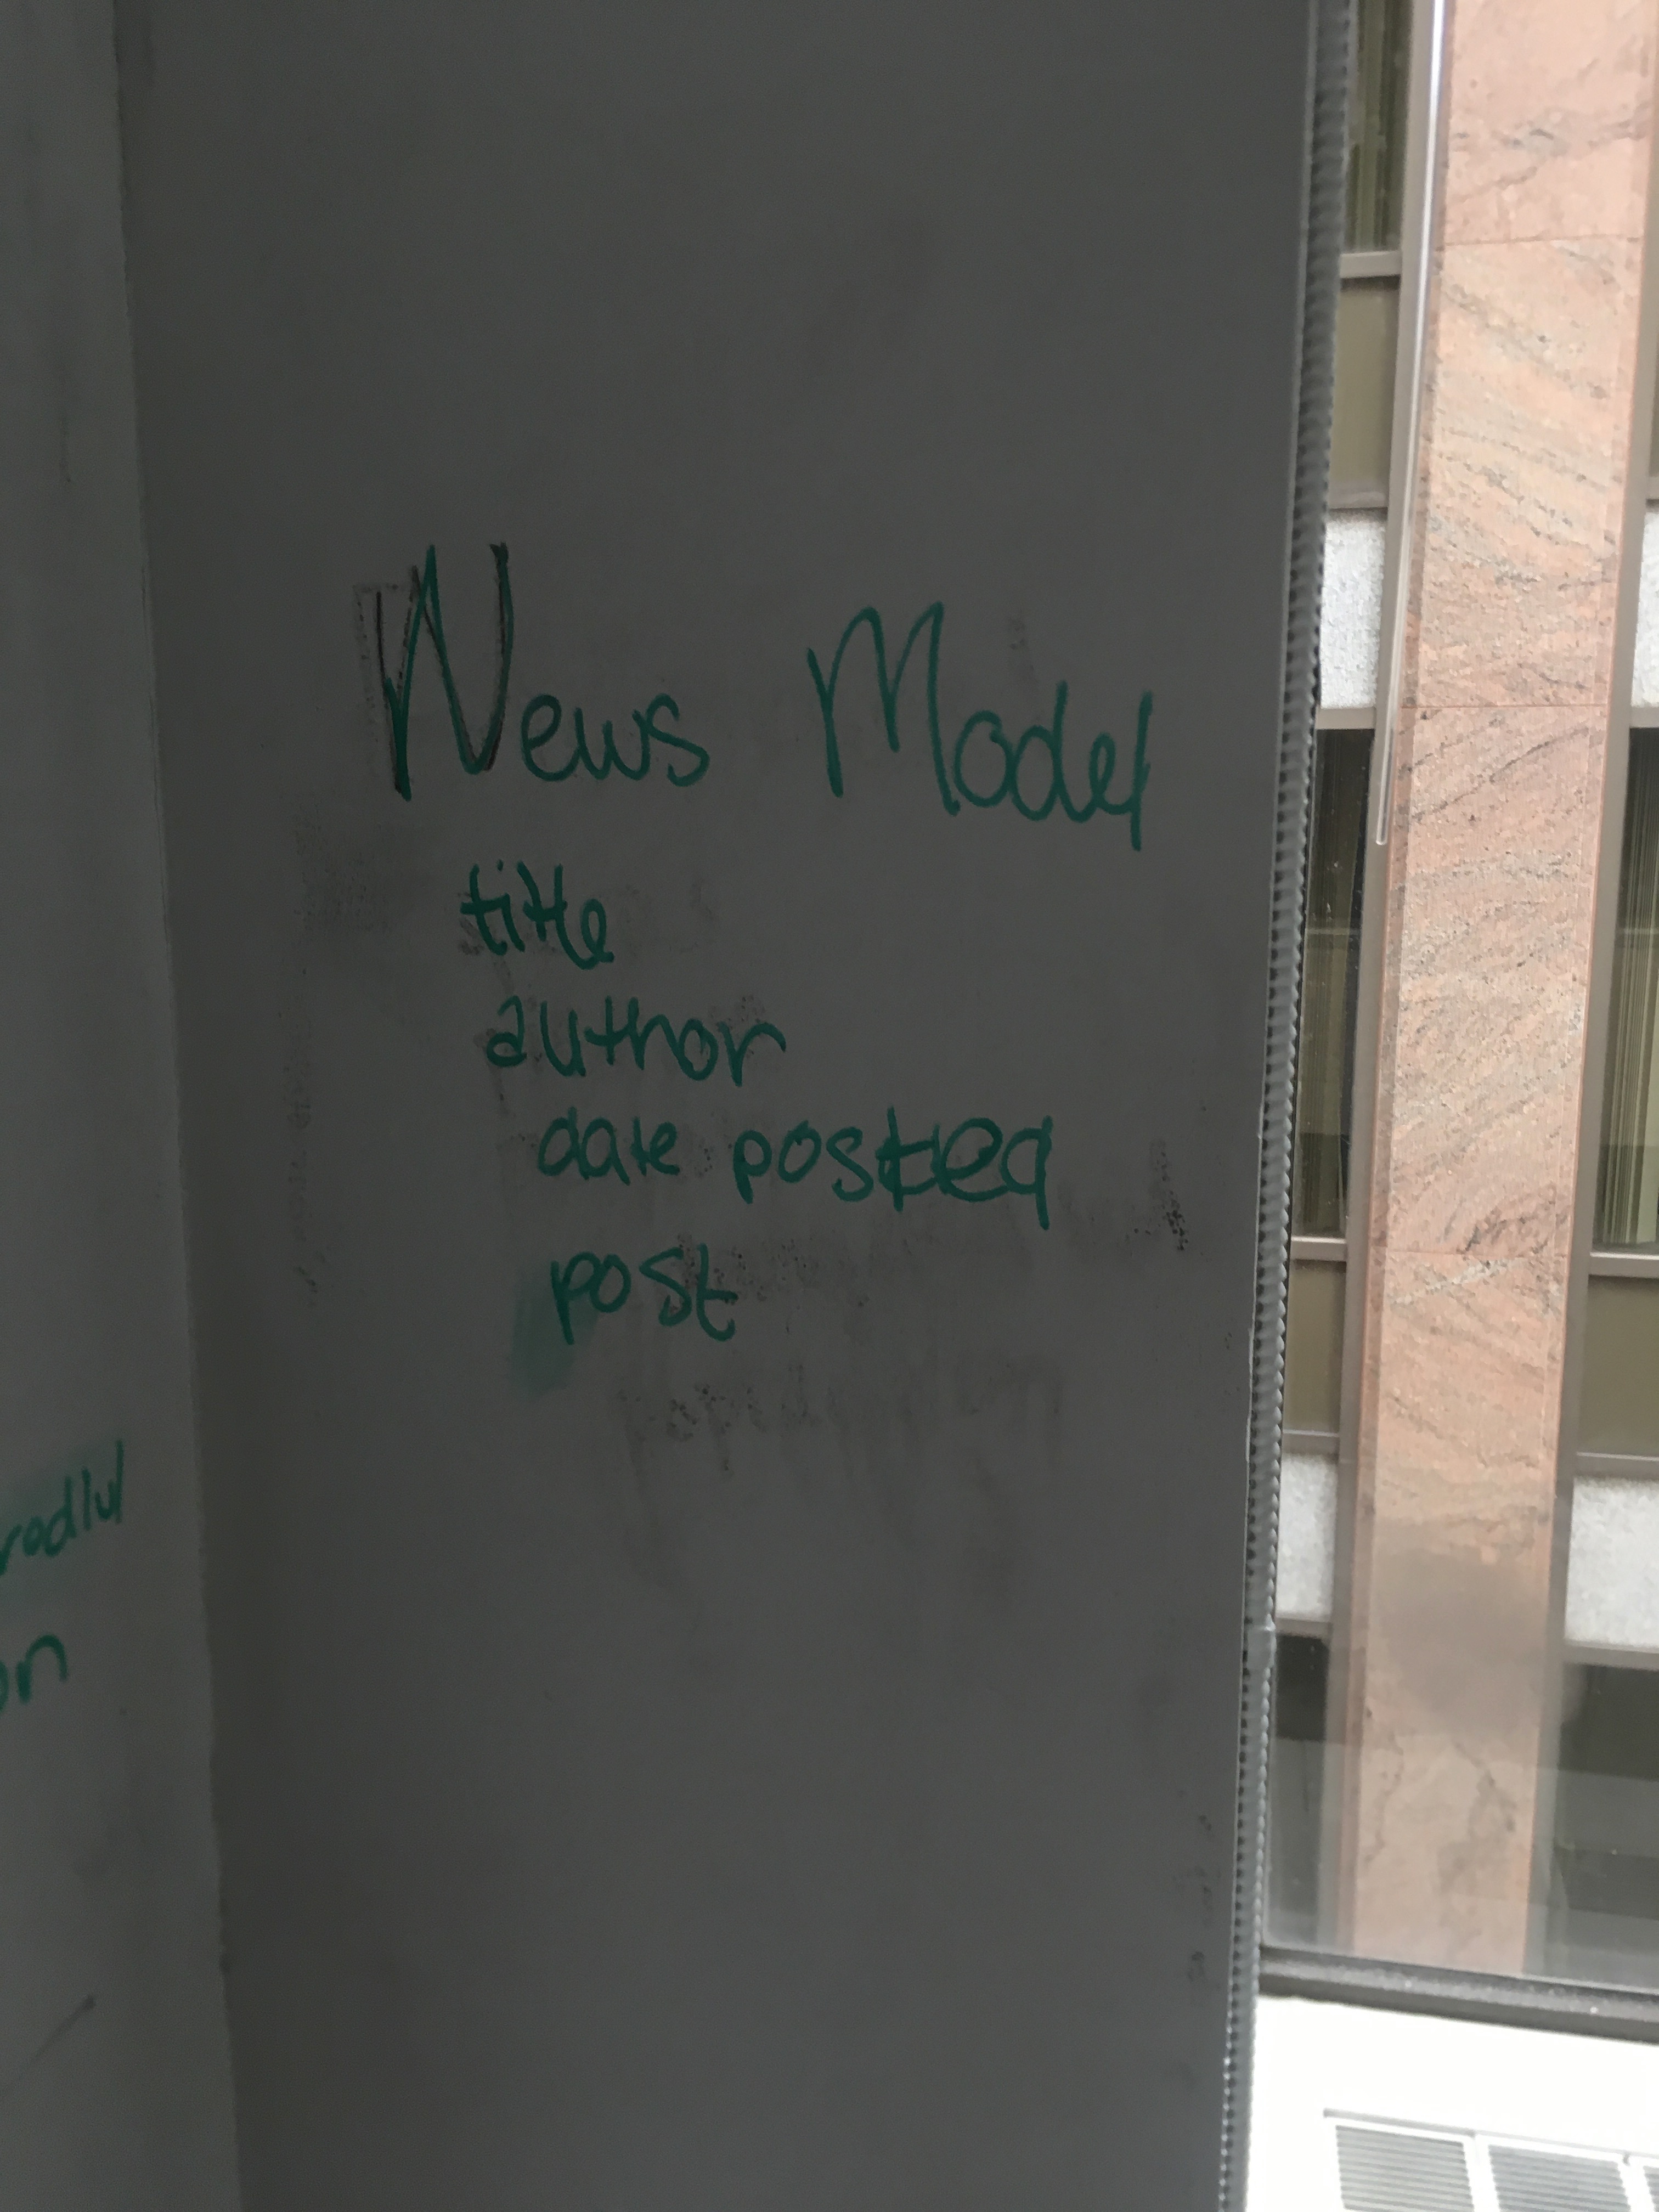 News Model
title
author
date posted
post